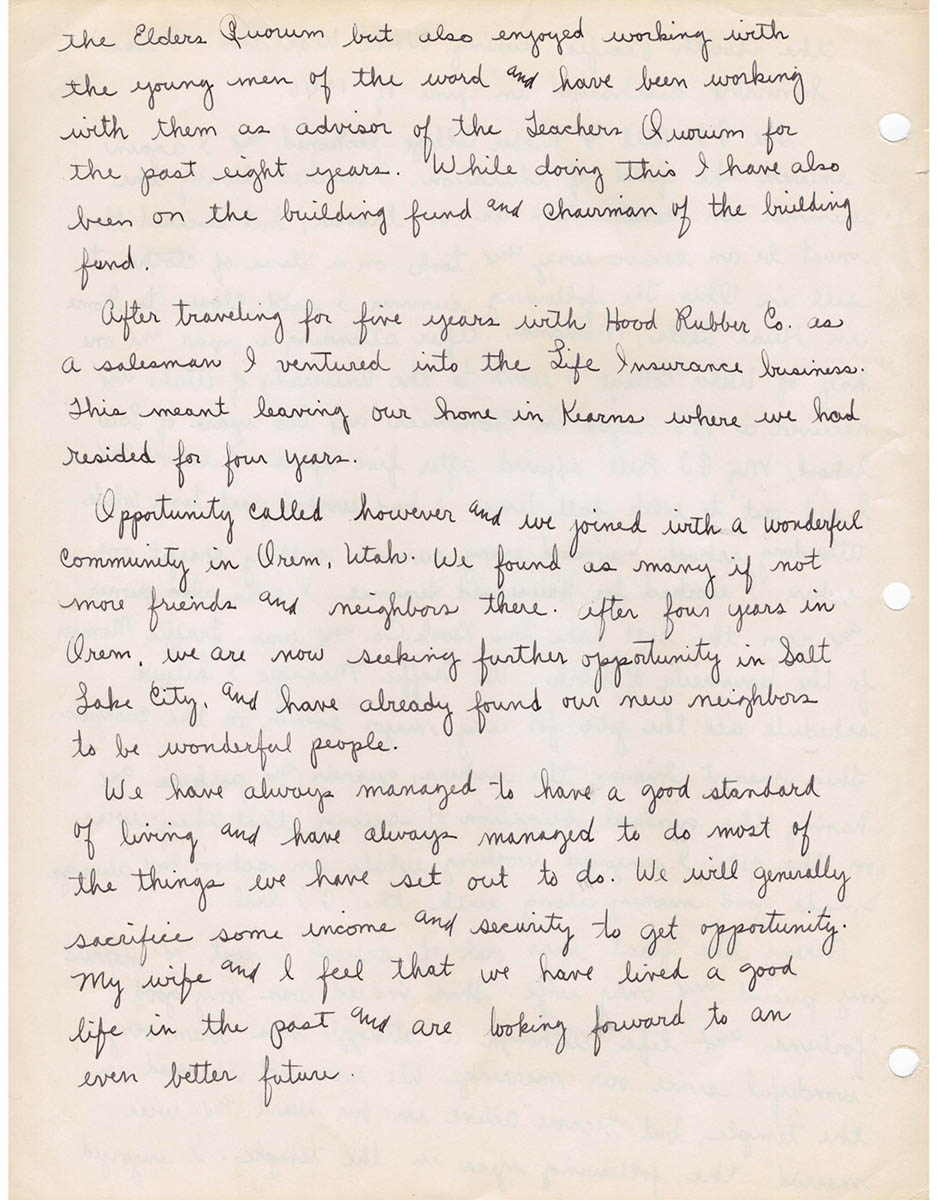 the Elders Quorum but also enjoyed working with
the young men of the ward and have been working
with them as advisor of the Teachers Quorum for
the past eight years. While doing this I have also
been on the building fund and chairman of the building
fund.
After traveling for five years with Hood Rubber Co. as
a salesman I ventured into the Life Insurance business.
This meant leaving our home in Kearns where we had
resided for four years.
Opportunity called however and we joined with a wonderful
community in Orem, Utah. We found as many if not
more friends and neighbors there. After four years in
Orem, we are now seeking further opportunity in Salt
Lake City, and have already found our new neighbors
to be wonderful people.
We have always managed to have a good standard
of living and have always managed to do most of
the things we have set out to do. We will generally
sacrifice some income and security to get opportunity.
My wife and I feel that we have lived a good
life in the past and are looking forward to an
even better future.